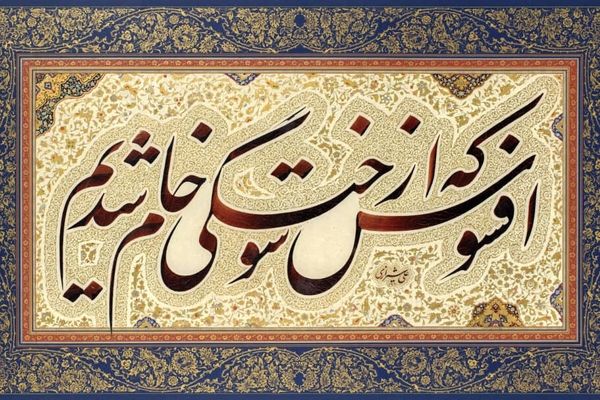 افسوس که از سوختگی خام شدیم
علی شیرازی